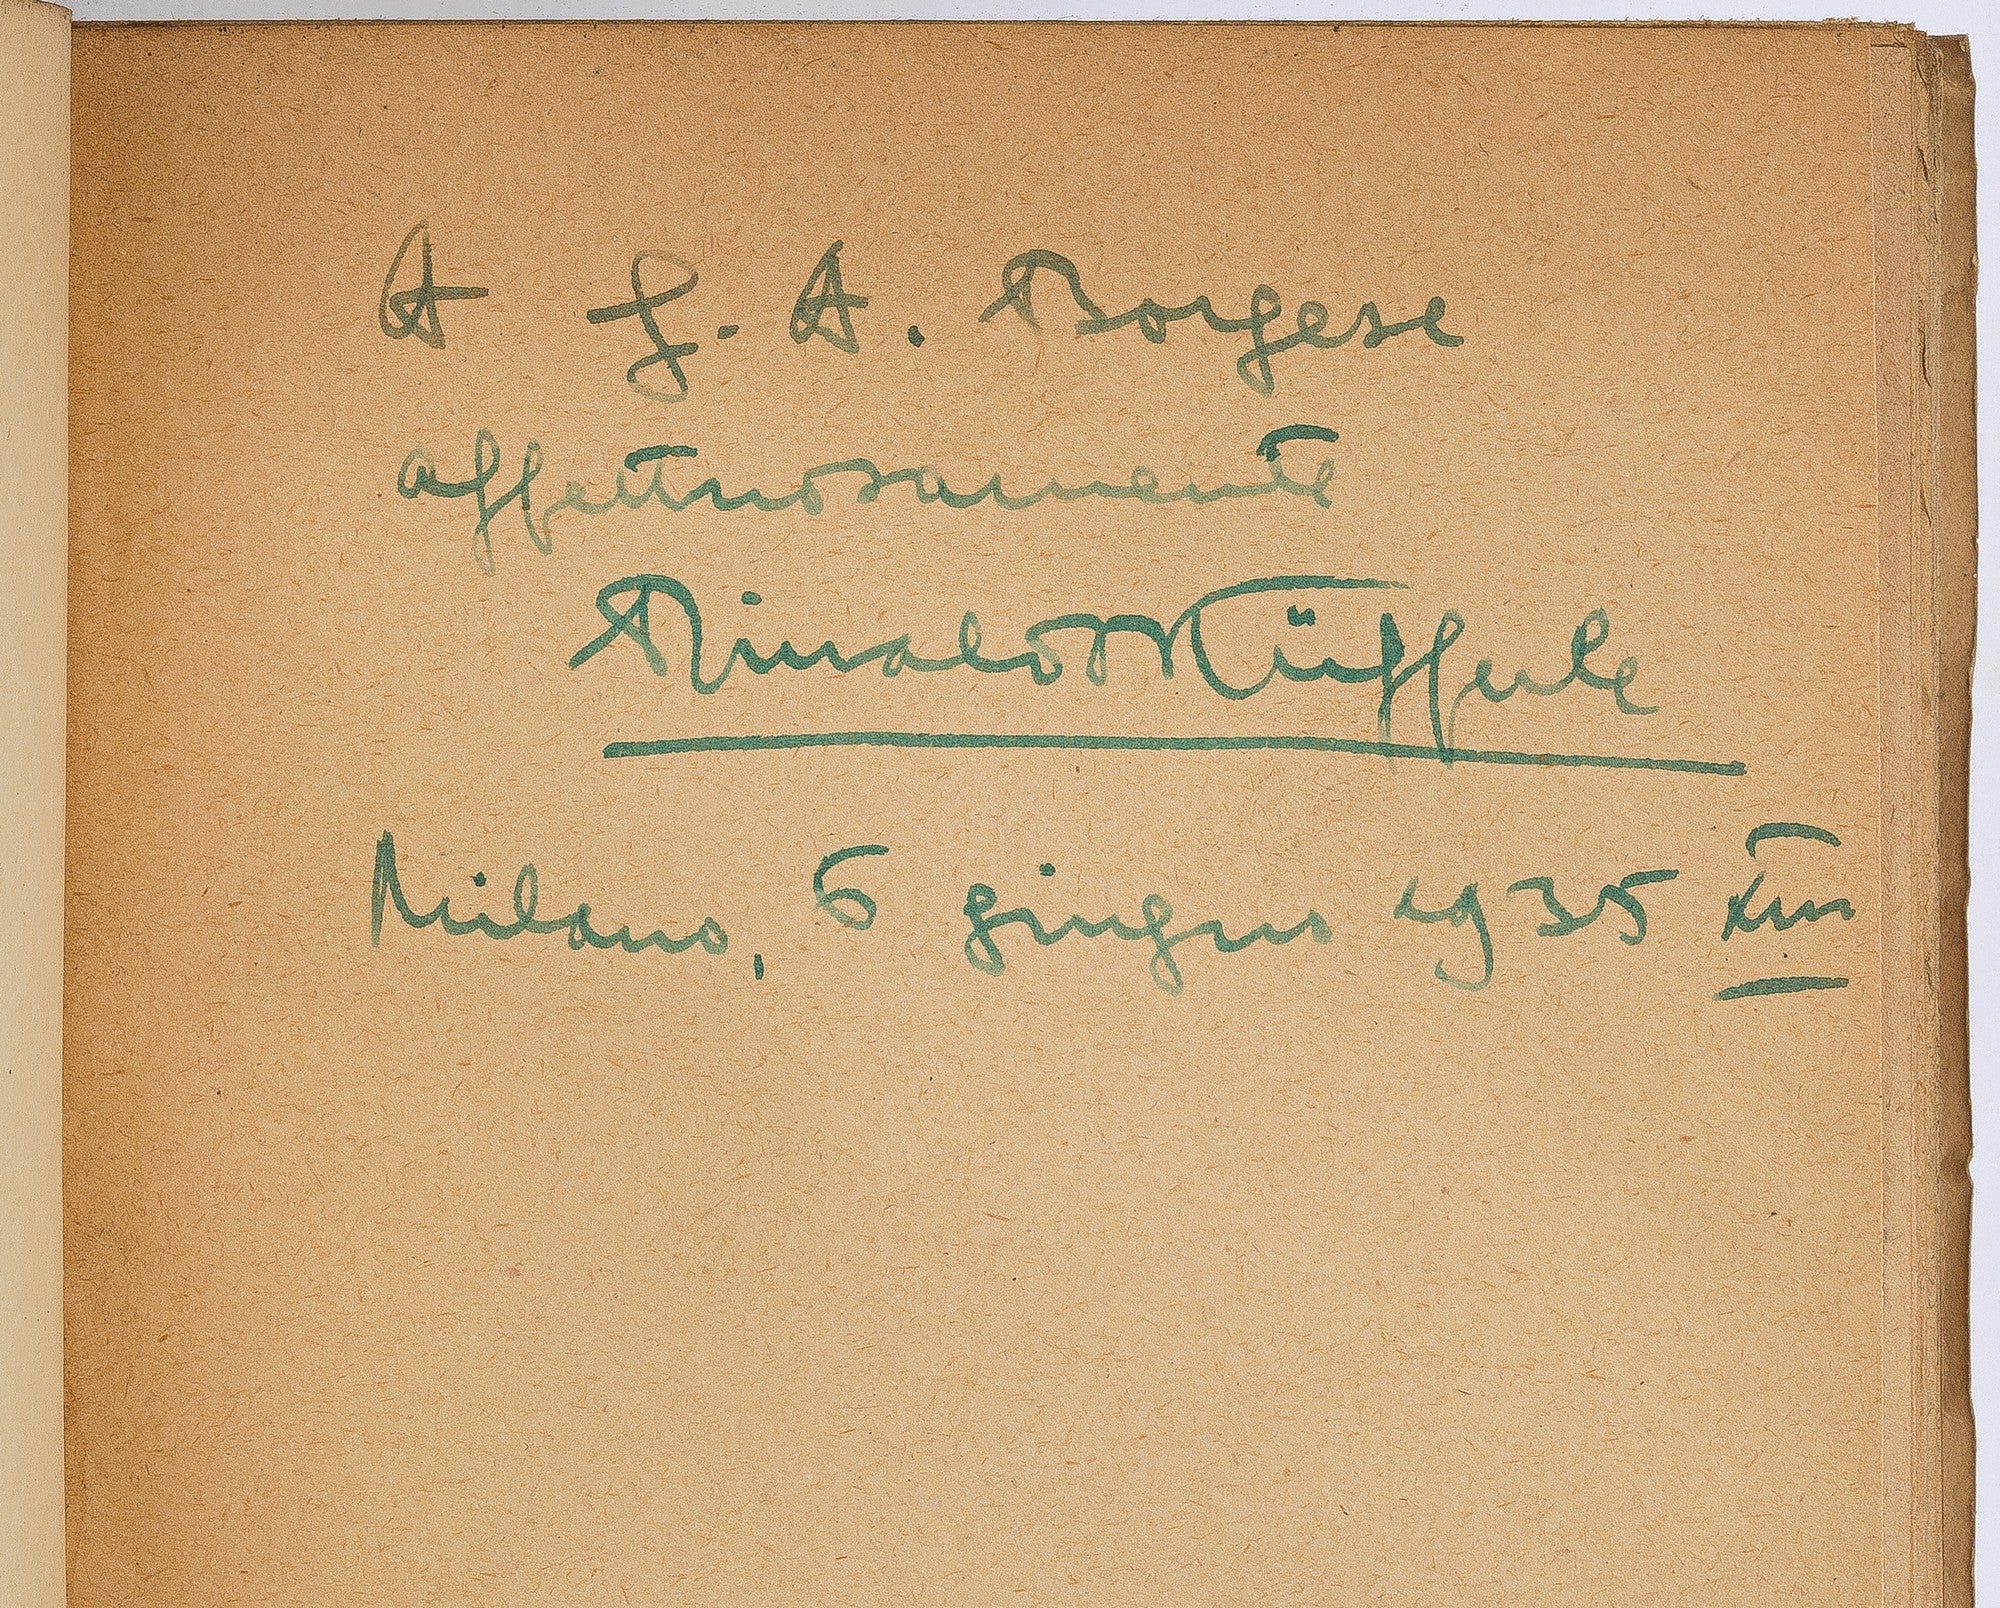 A G. A. Borgese
affettuosamente
Rinaldo Küfferle
Milano, 6 giugno 1935 XIII